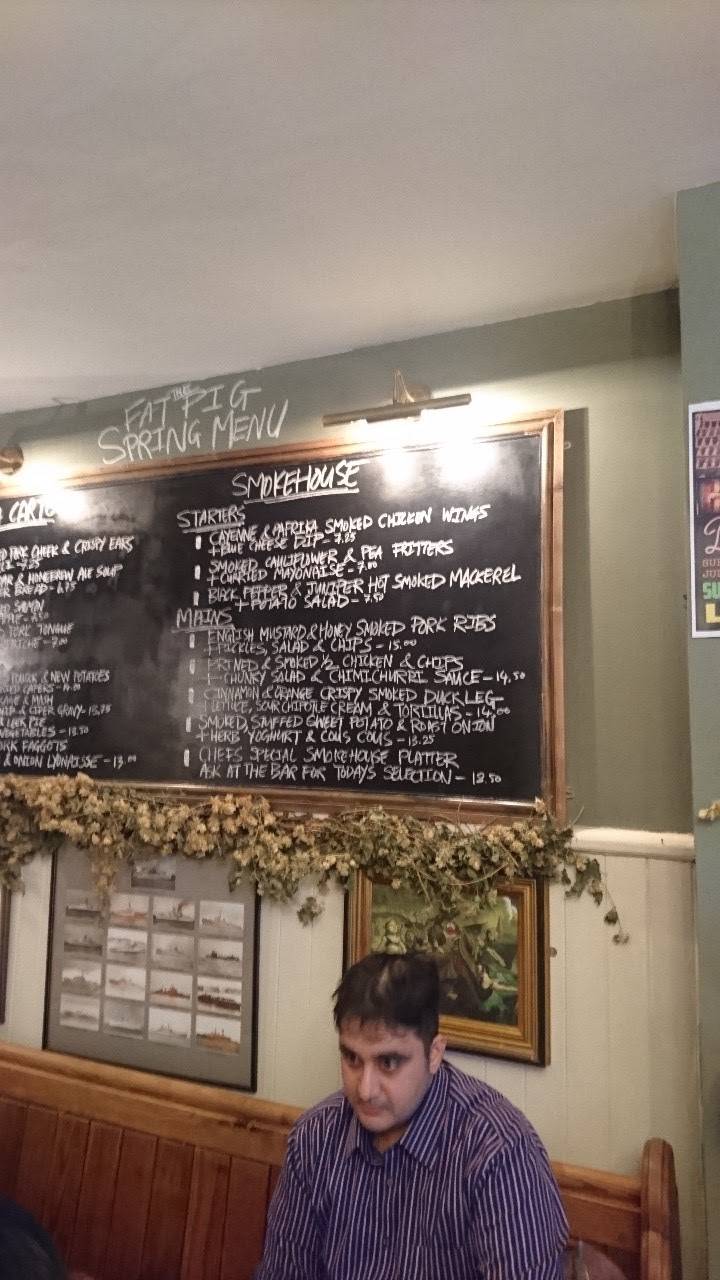 THAT
FAT PIG
SPRING MENU
CARTE
CHEEK & CRISPY EARS
7.25
& HOMEBREW ALE SOUP
BREAD - 6.75
TONGUE
7.00
& NEW POTATOES
CAPERS - 14.00
& MASH
& CIDER GRAVY - 13.75
LEEK PIE
VEGETABLES - 13.50
FAGGOTS
& ONION LYONAISSE - 13.00
SMOKEHOUSE
STARTERS
CAYENNE & PAPRIKA SMOKED CHICKEN WINGS
+ BLUE CHEESE DIP - 7.25
SMOKED CAULIFLOWER & PEA FRITTERS
+ CURRIED MAYONAISE - 7.00
BLACK PEPPER & JUNIPER HOT SMOKED MACKEREL
+ POTATO SALAD - 7.50
MAINS
ENGLISH MUSTARD & HONEY SMOKED PORK RIBS
+ PICKLES, SALAD & CHIPS - 15.00
BRINED & SMOKED ½ CHICKEN & CHIPS
+ CHUNKY SALAD & CHIMICHURRI SAUCE - 14.50
CINNAMON & ORANGE CRISPY SMOKED DUCK LEG -
LETTUCE, SOUR CHIPOTLE CREAM & TORTILLAS - 14.00
SMOKED, STUFFED SWEET POTATO & ROAST ONION
+ HERB YOGHURT & COUS COUS - 13.25
CHEFS SPECIAL SMOKEHOUSE PLATTER
ASK AT THE BAR FOR TODAYS SELECTION - 18.50